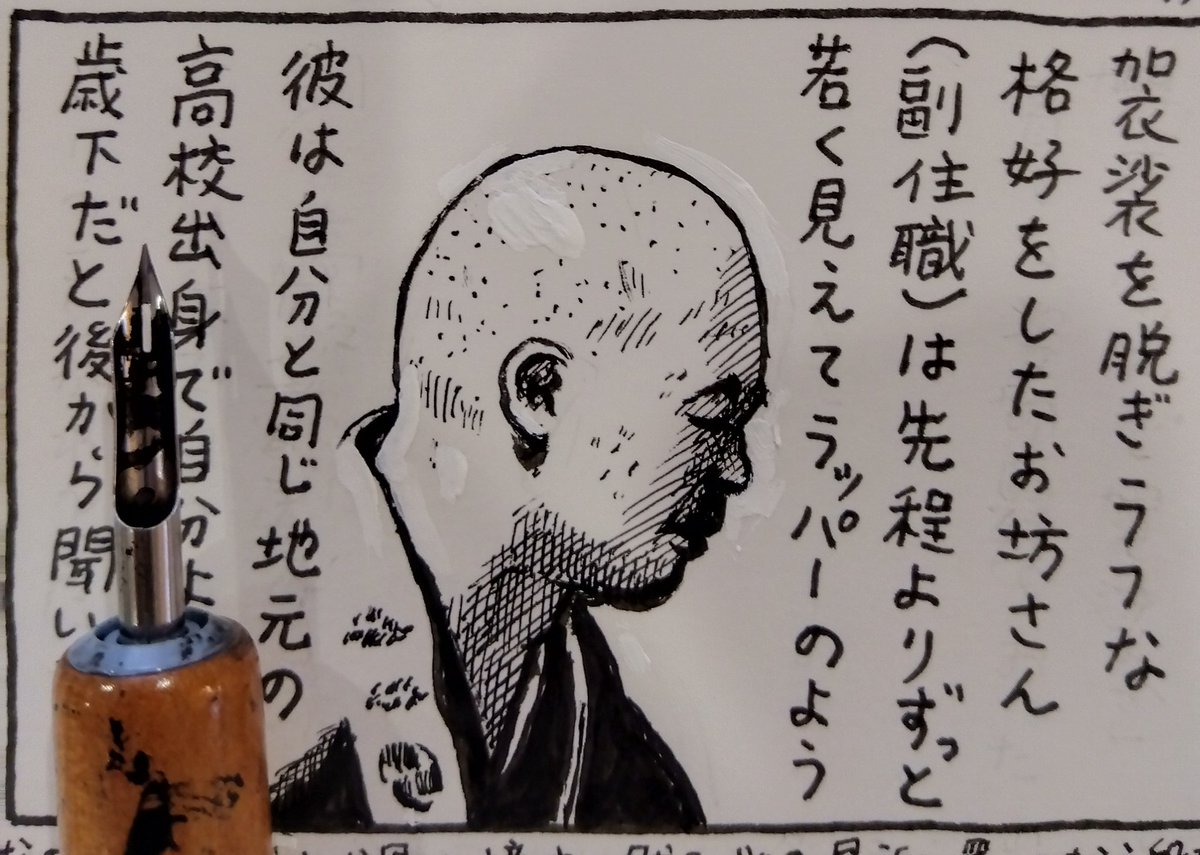 袈裟を脱ぎラフな
格好をしたお坊さん
（副住職）は先程よりずっと
若く見えてラッパーのよう
彼は自分と同じ地元の
高校出身で自分よ
歳下だと後から聞い